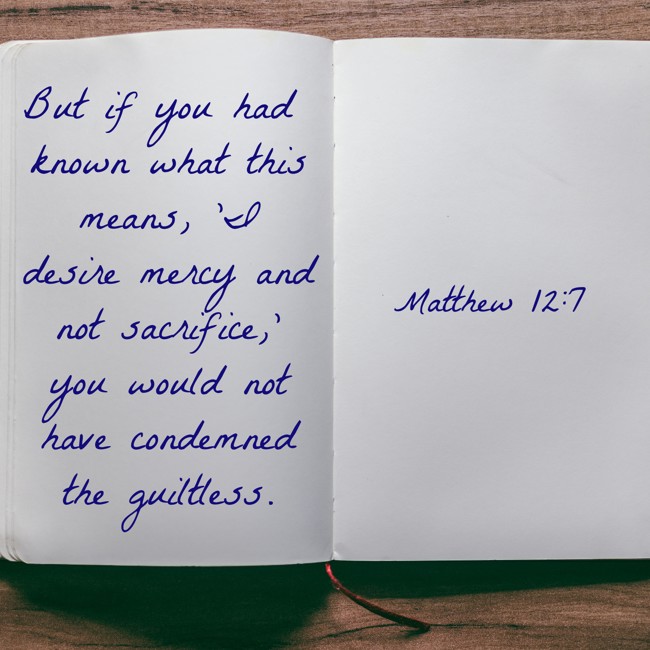 But if you had
known what this
means, 'I
desire mercy and
not sacrifice,'
you would not
have condemned
the guiltless.
Matthew 12:7